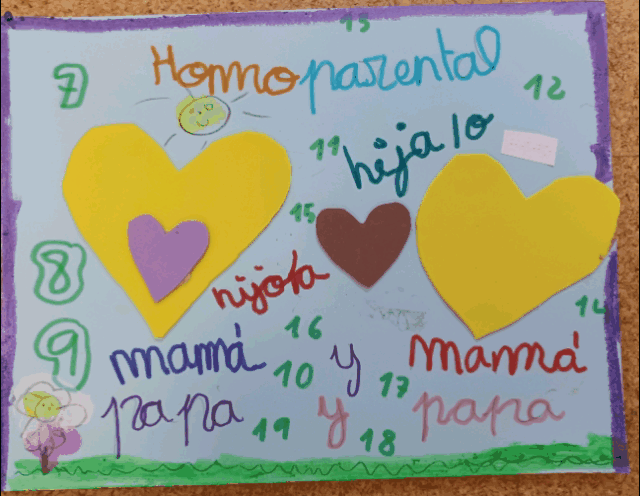 13
7 Homoparental 12
11 hija/o
15
8 hijo/a 14
16
9 mamá 10 y 17 mamá
papa 19 y 18 papá